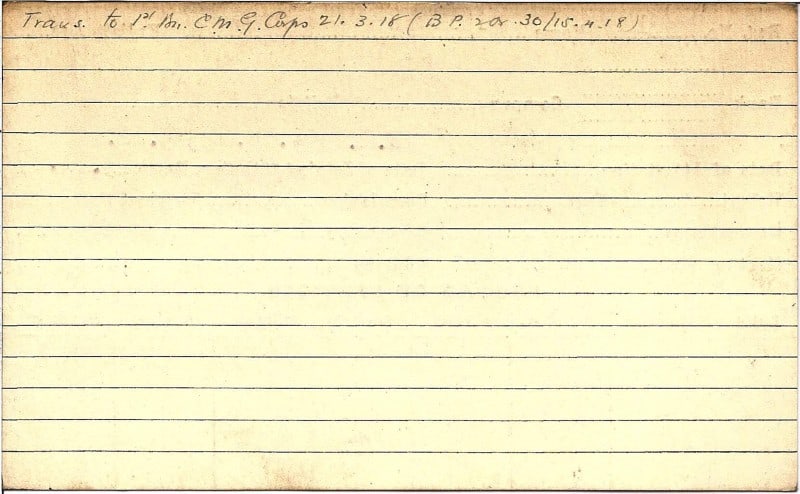 Trans. to 1st Bn. C.M.G. Corps 21.3.18 (B P. 2 Or. 30/15.4.18)